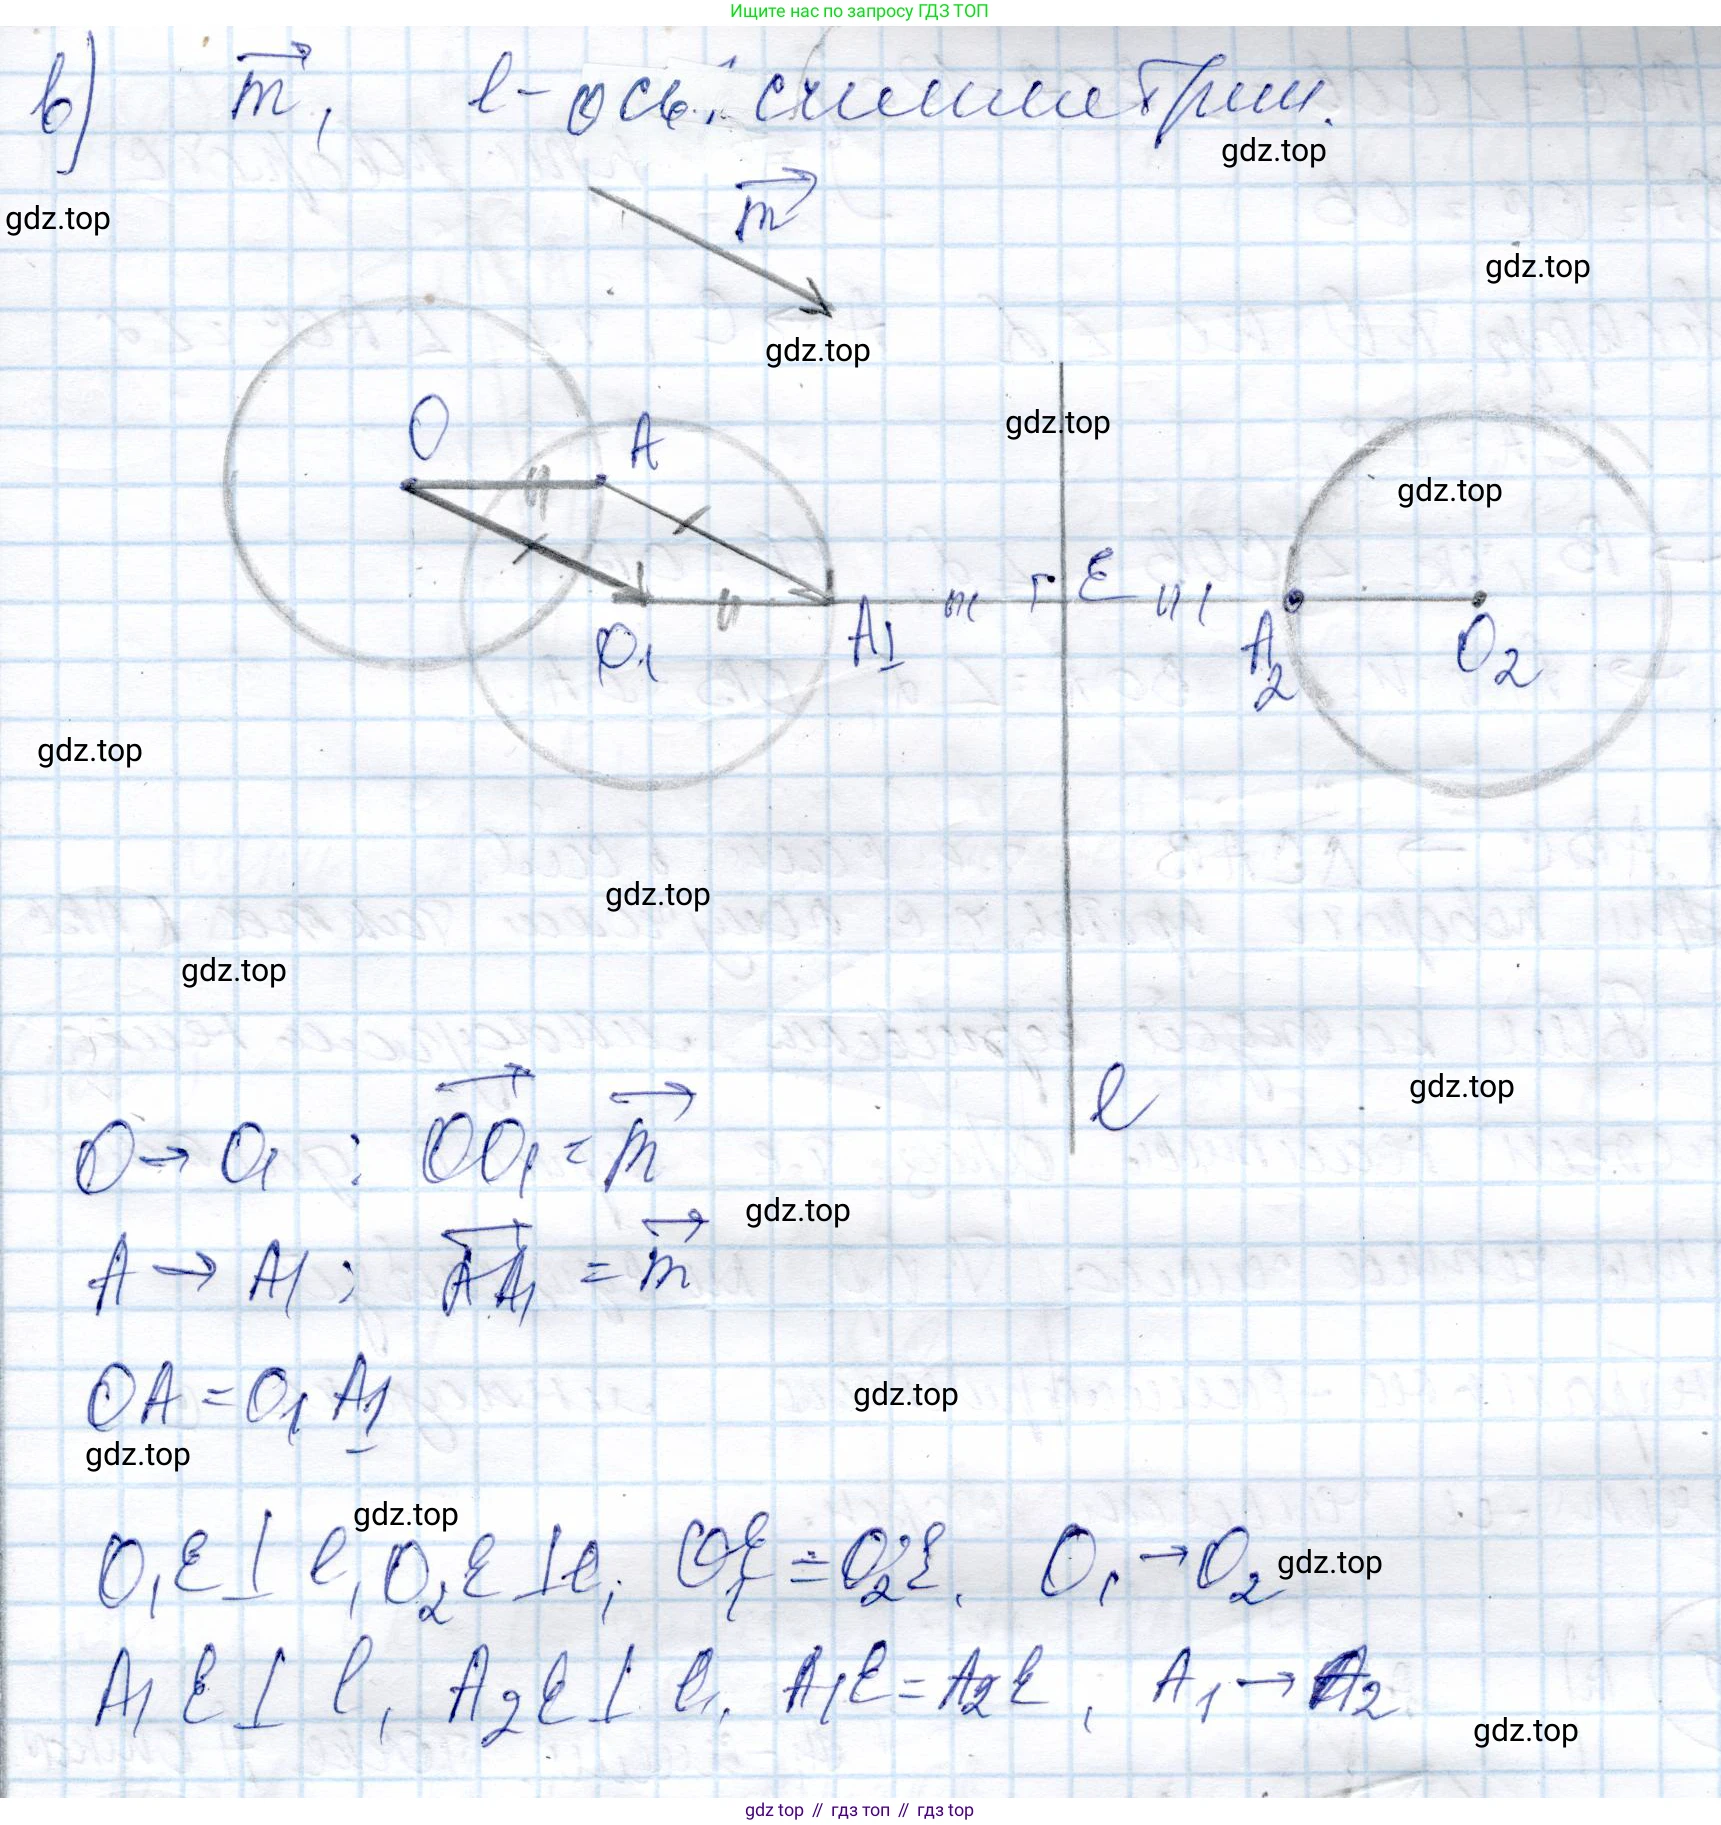 Ищите нас по запросу ГДЗ ТОП
в) m, l - ось симметрии.
gdz.top
gdz.top
m
gdz.top
gdz.top
gdz.top
O
A
gdz.top
E
O₁
A₁
A₂
O₂
gdz.top
gdz.top
gdz.top
l
gdz.top
O → O₁ ; OO₁ = m
gdz.top
A → A₁ ; AA₁ = m
OA = O₁A₁
gdz.top
gdz.top
gdz.top
O₁E ⊥ l, O₂E ⊥ l; O₁E = O₂E, O₁ → O₂
gdz.top
A₁E ⊥ l, A₂E ⊥ l, A₁E = A₂E, A₁ → A₂
gdz.top
gdz top // гдз топ // гдз top